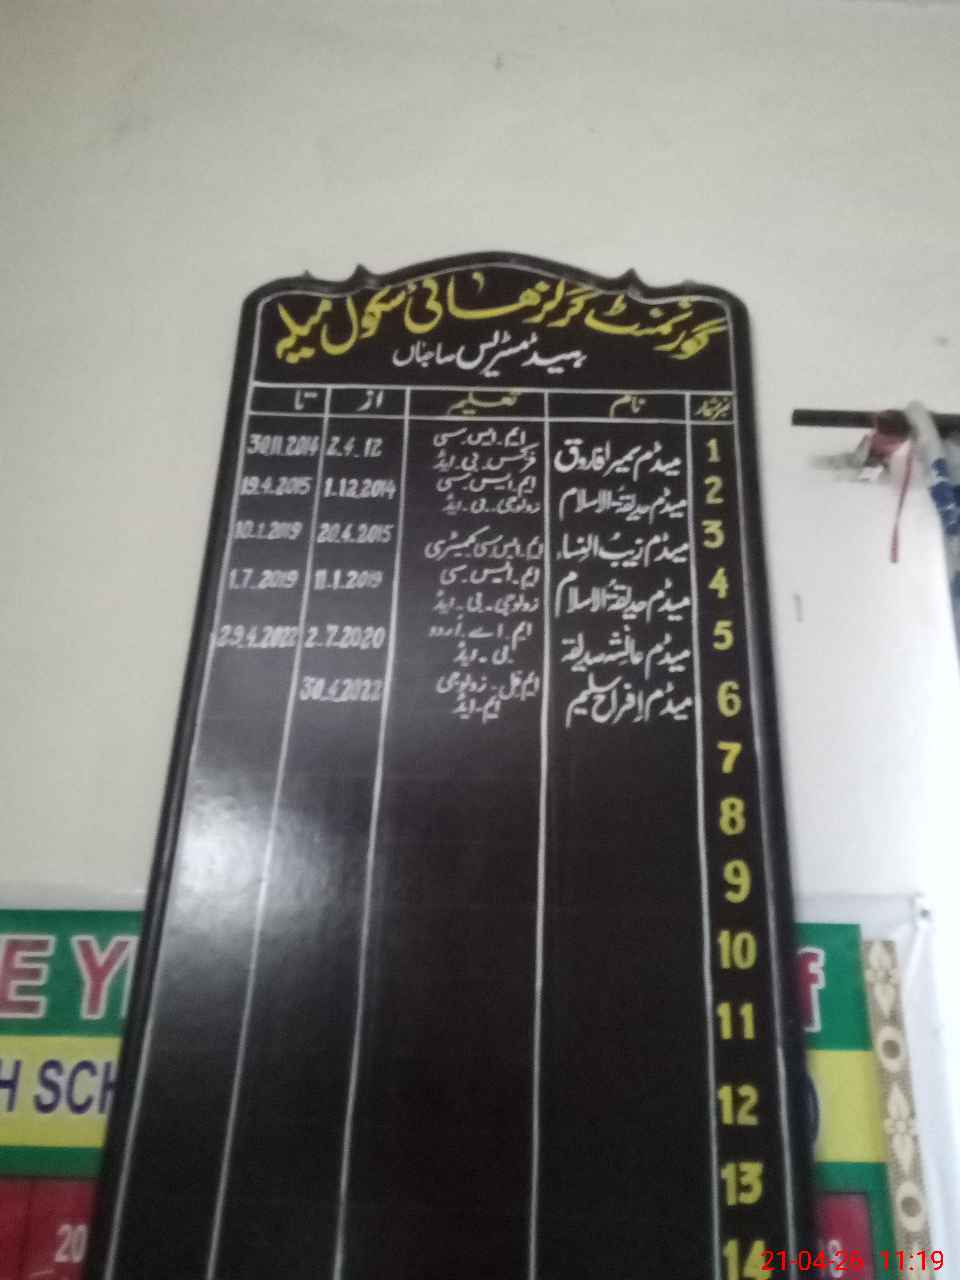 گورنمنٹ گرلز ھائی سکول میلہ
ہیڈ مسٹریس صاحباں
نمبر شمار نام تعلیم از تا
1 میڈم سمیرا فاروق ایم۔ایس۔سی 2.4.12 30.11.2014
فزکس۔بی۔ایڈ
2 میڈم حدیقۃ الاسلام ایم۔ایس۔سی 1.12.2014 19.4.2015
زولوجی۔بی۔ایڈ
3 میڈم زیب النساء ایم۔ایس۔سی کیمسٹری 20.4.2015 10.1.2019
4 میڈم حدیقۃ الاسلام ایم۔ایس۔سی 11.1.2019 1.7.2019
زولوجی۔بی۔ایڈ
5 میڈم عائشہ صدیقہ ایم۔اے۔اُردو 2.7.2020 29.4.2022
بی۔ایڈ
6 میڈم اِفراح سلیم ایم فل۔زولوجی 30.4.2022
ایم۔ایڈ
7
8
9
10
11
12
13
14
E Y
f
H SCH
20
21-04-26 11:19